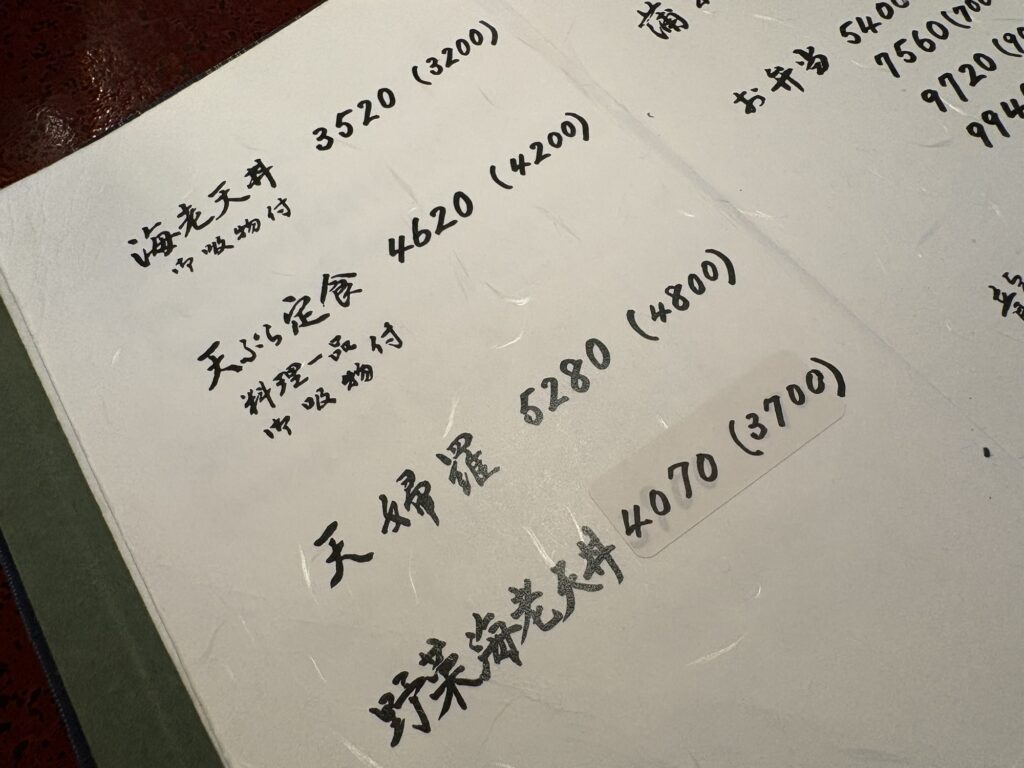 海老天丼 3520 (3200)
御吸物付
天ぷら定食 4620 (4200)
料理一品
御吸物付
天婦羅 5280 (4800)
野菜海老天丼 4070 (3700)
蒲
お弁当 5400
7560 (700
9720 (90
994